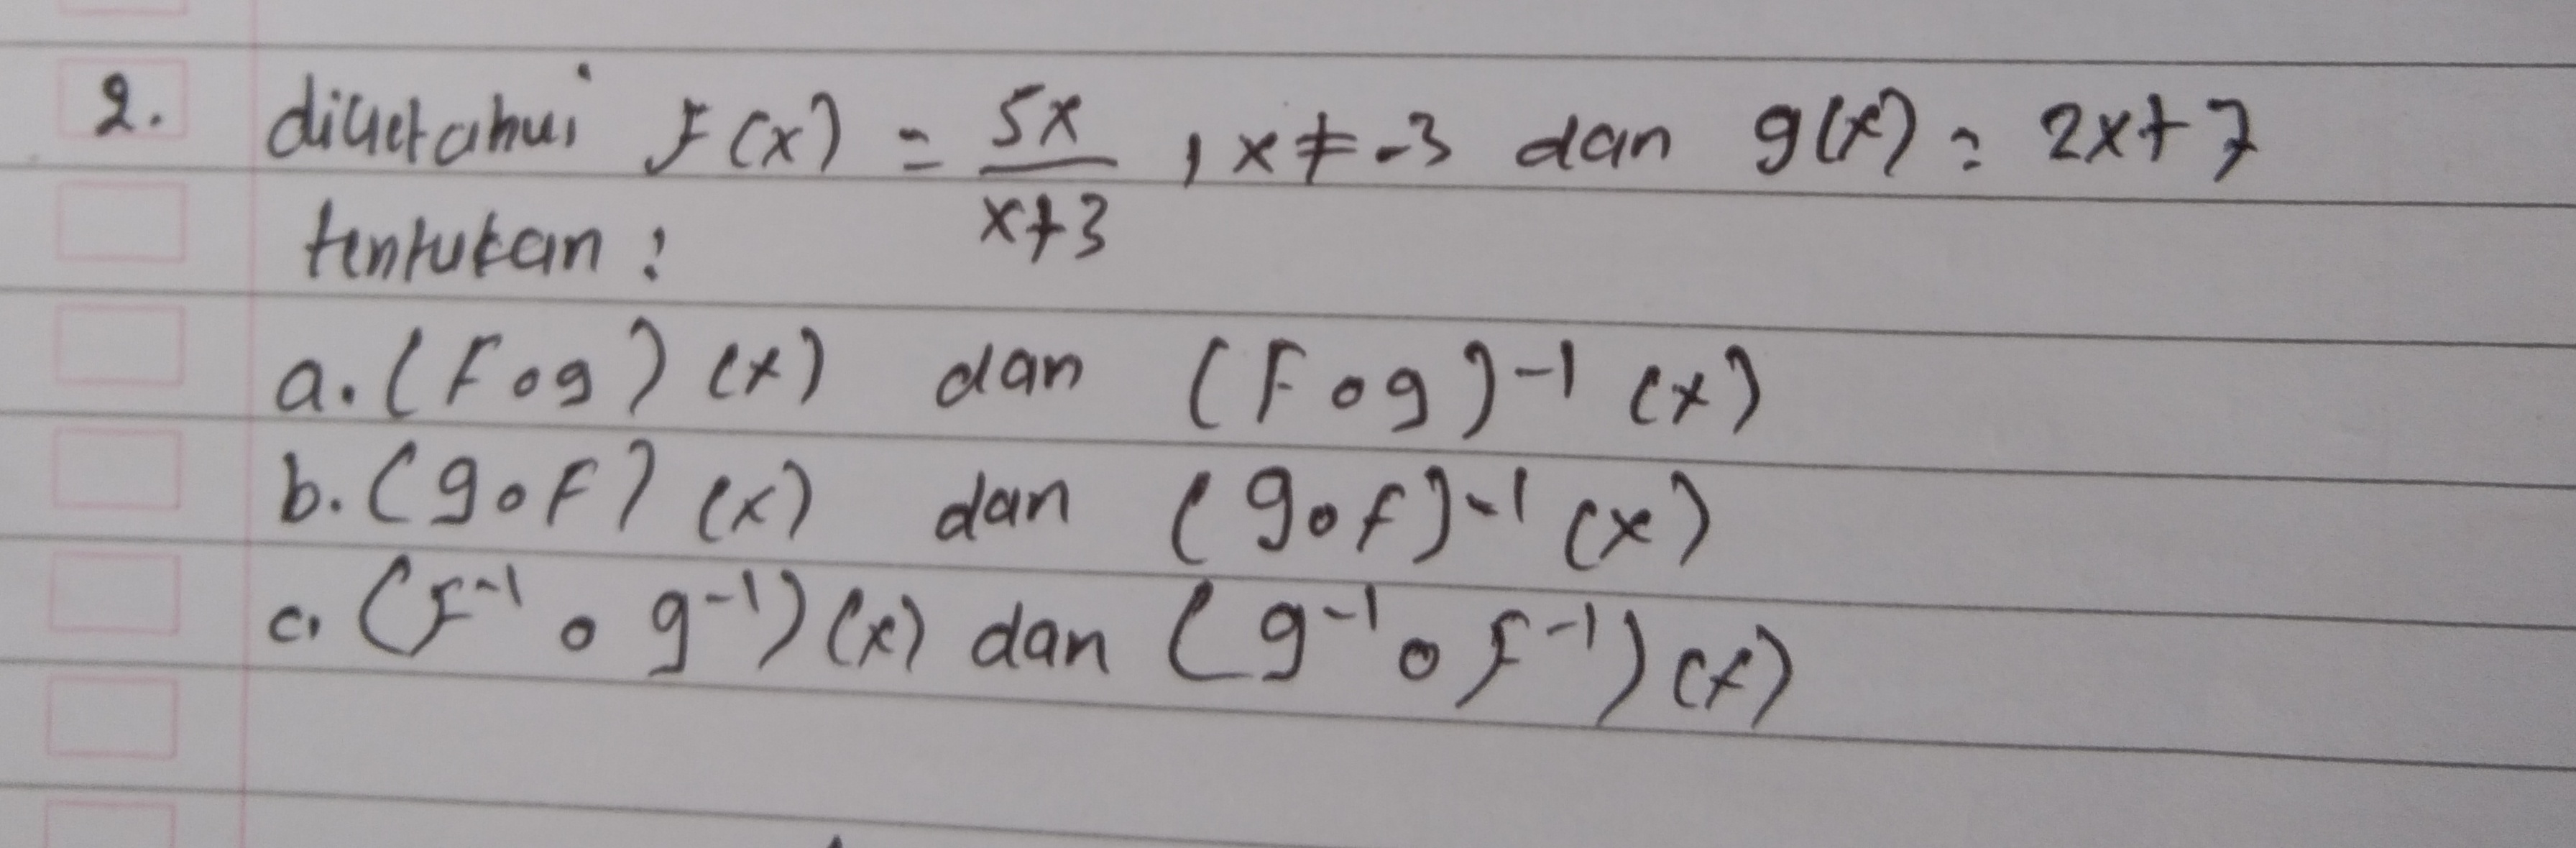 2. diketahui F(x) = 5x/x+3 , x ≠ -3 dan g(x) = 2x+7
tentukan :
a. (F o g) (x) dan (F o g)-1 (x)
b. (g o F) (x) dan (g o f)-1 (x)
c. (F-1 o g-1) (x) dan (g-1 o F-1) (x)